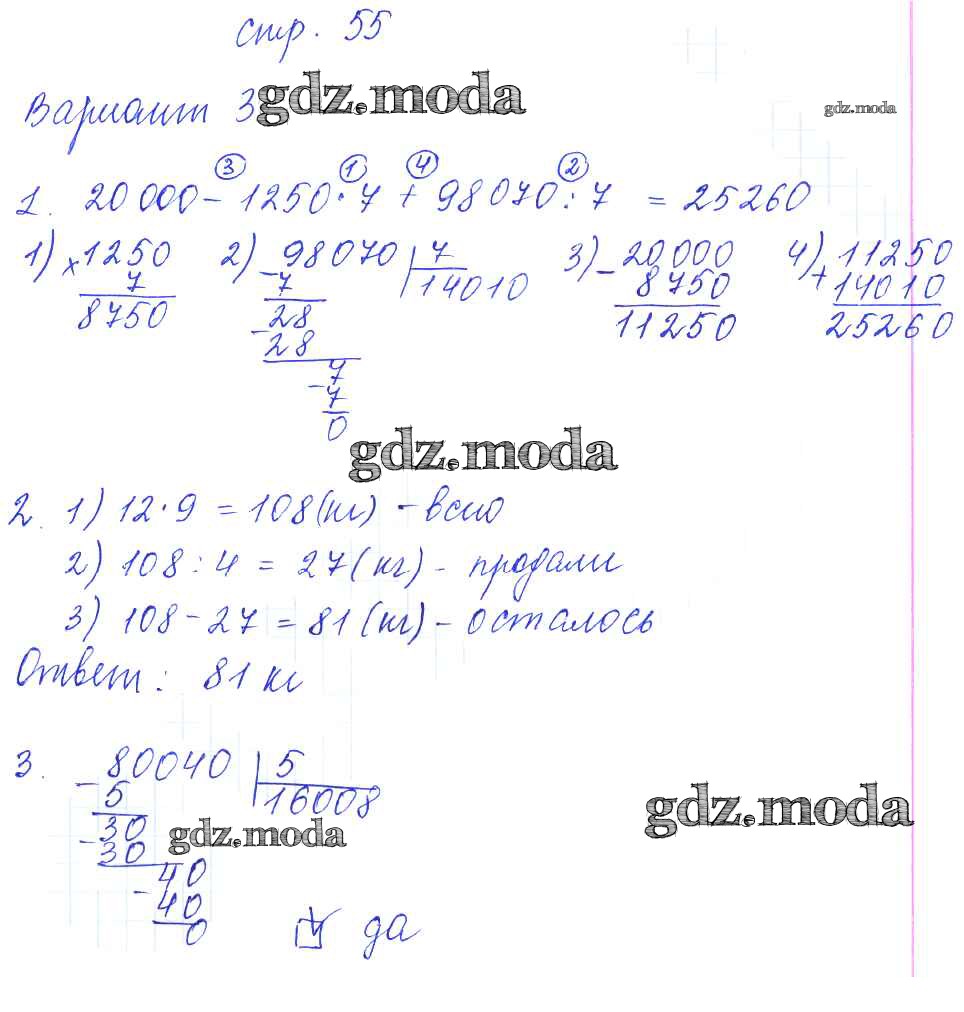 стр. 55
Вариант 3
gdz.moda
gdz.moda
③ ① ④ ②
1. 20 000 - 1250 · 7 + 98 070 : 7 = 25260
1) × 1250 2) - 98070 | 7 3) - 20 000 4) + 11250
7 7 14010 8 750 14010
8750 28 11250 25260
- 28
7
- 7
0
gdz.moda
2. 1) 12 · 9 = 108 (кг) - всего
2) 108 : 4 = 27 (кг) - продали
3) 108 - 27 = 81 (кг) - осталось
Ответ: 81 кг
3. - 80040 | 5
5 16008
- 30
30
gdz.moda
gdz.moda
- 40
40
0
да